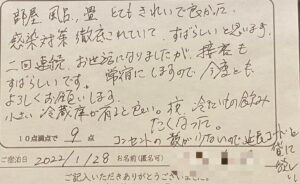 部屋、風呂、畳 とてもきれいで良かった。
感染対策 徹底されていて、すばらしいと思います。
二回連続 お世話になりましたが、接客も
すばらしいです。常宿にしますので、今度とも
よろしくお願いします。
小さい 冷蔵庫が有ると良い。夜 冷たいもの飲み
たくなって。
10点満点で 9 点
コンセントの数が少ないので延長コードも
貸して
欲しい
ご宿泊日 2022/1/28 お名前(匿名可)
ご記入いただきありがとうございました。